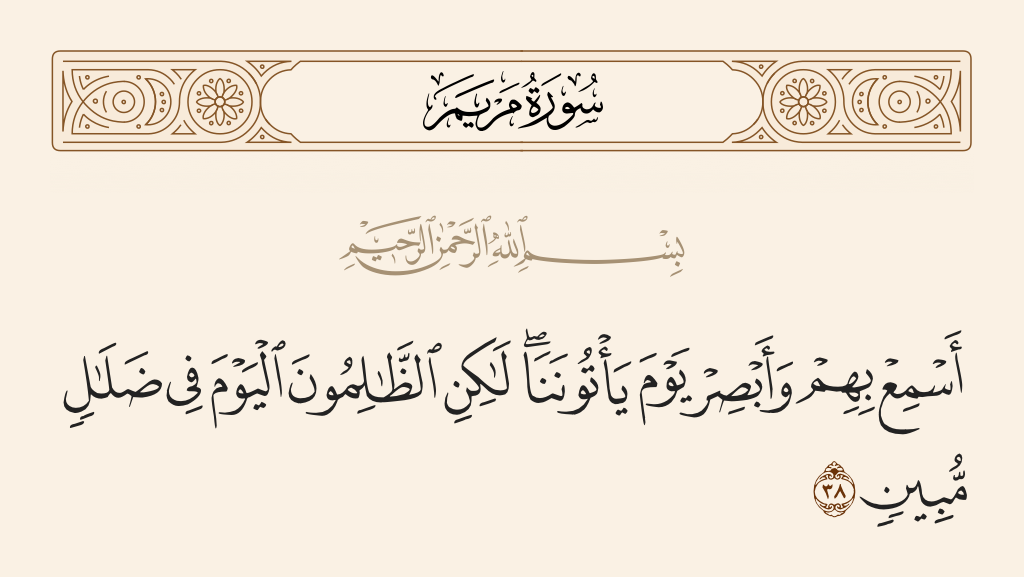 سُورَةُ مَرۡيَمَ
بِسۡمِ ٱللَّهِ ٱلرَّحۡمَٰنِ ٱلرَّحِيمِ
أَسۡمِعۡ بِهِمۡ وَأَبۡصِرۡ يَوۡمَ يَأۡتُونَنَاۖ لَٰكِنِ ٱلظَّٰلِمُونَ ٱلۡيَوۡمَ فِي ضَلَٰلٖ
مُّبِينٖ ٣٨